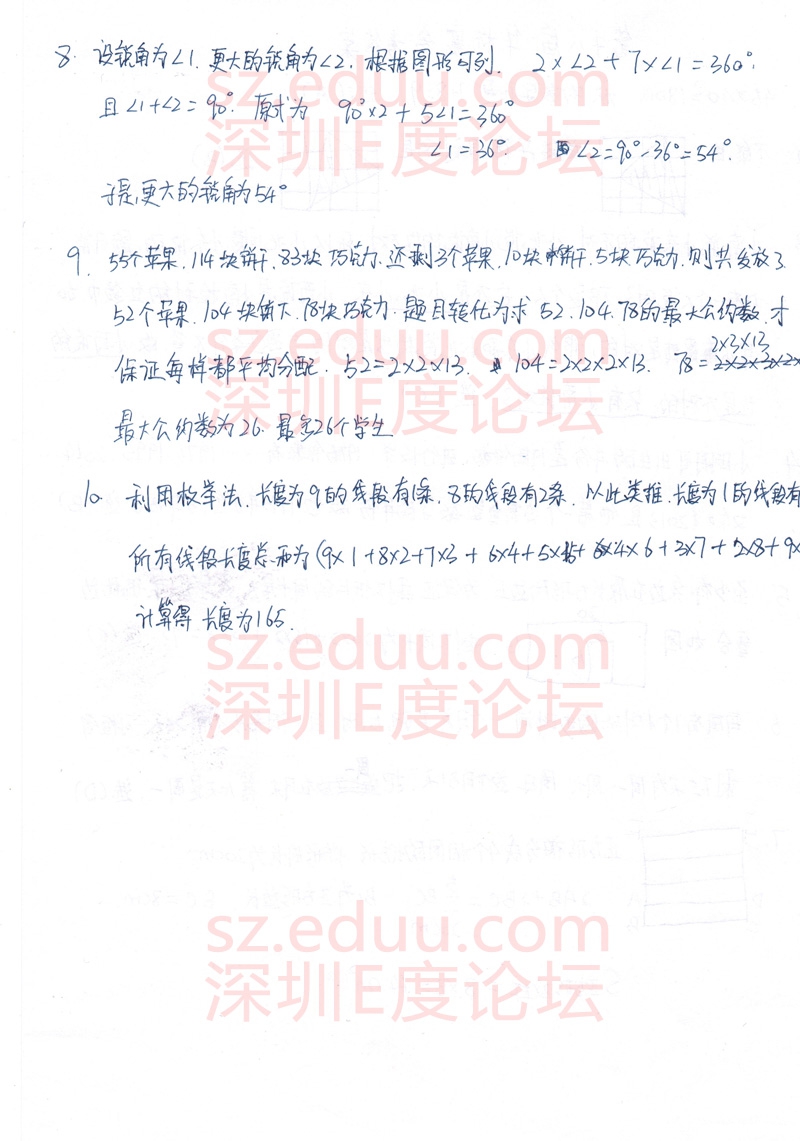 8. 设锐角为∠1. 更大的锐角为∠2. 根据图形可列. 2×∠2+7×∠1=360°.
sz.eduu.com
且∠1+∠2=90° 原式为 90°×2+5∠1=360°
深圳E度论坛
∠1=36°. ∠2=90°-36°=54°.
于是,更大的锐角为54°
9. 55个苹果.114块饼干.83块巧克力.还剩3个苹果.10块饼干.5块巧克力.则共发放了
sz.eduu.com
52个苹果.104块饼干.78块巧克力.题目转化为求52.104.78的最大公约数.才
深圳E度论坛
2×3×13
保证每样都平均分配. 52=2×2×13. 104=2×2×2×13. 78=
最大公约数为26. 最多26个学生
10 利用枚举法.长度为9的线段有1条.8的线段有2条.以此类推.长度为1的线段有
所有线段长度总和为(9×1+8×2+7×3+6×4+5×5+4×6+3×7+2×8+9×
计算得长度为165.
sz.eduu.com
深圳E度论坛
sz.eduu.com
深圳E度论坛